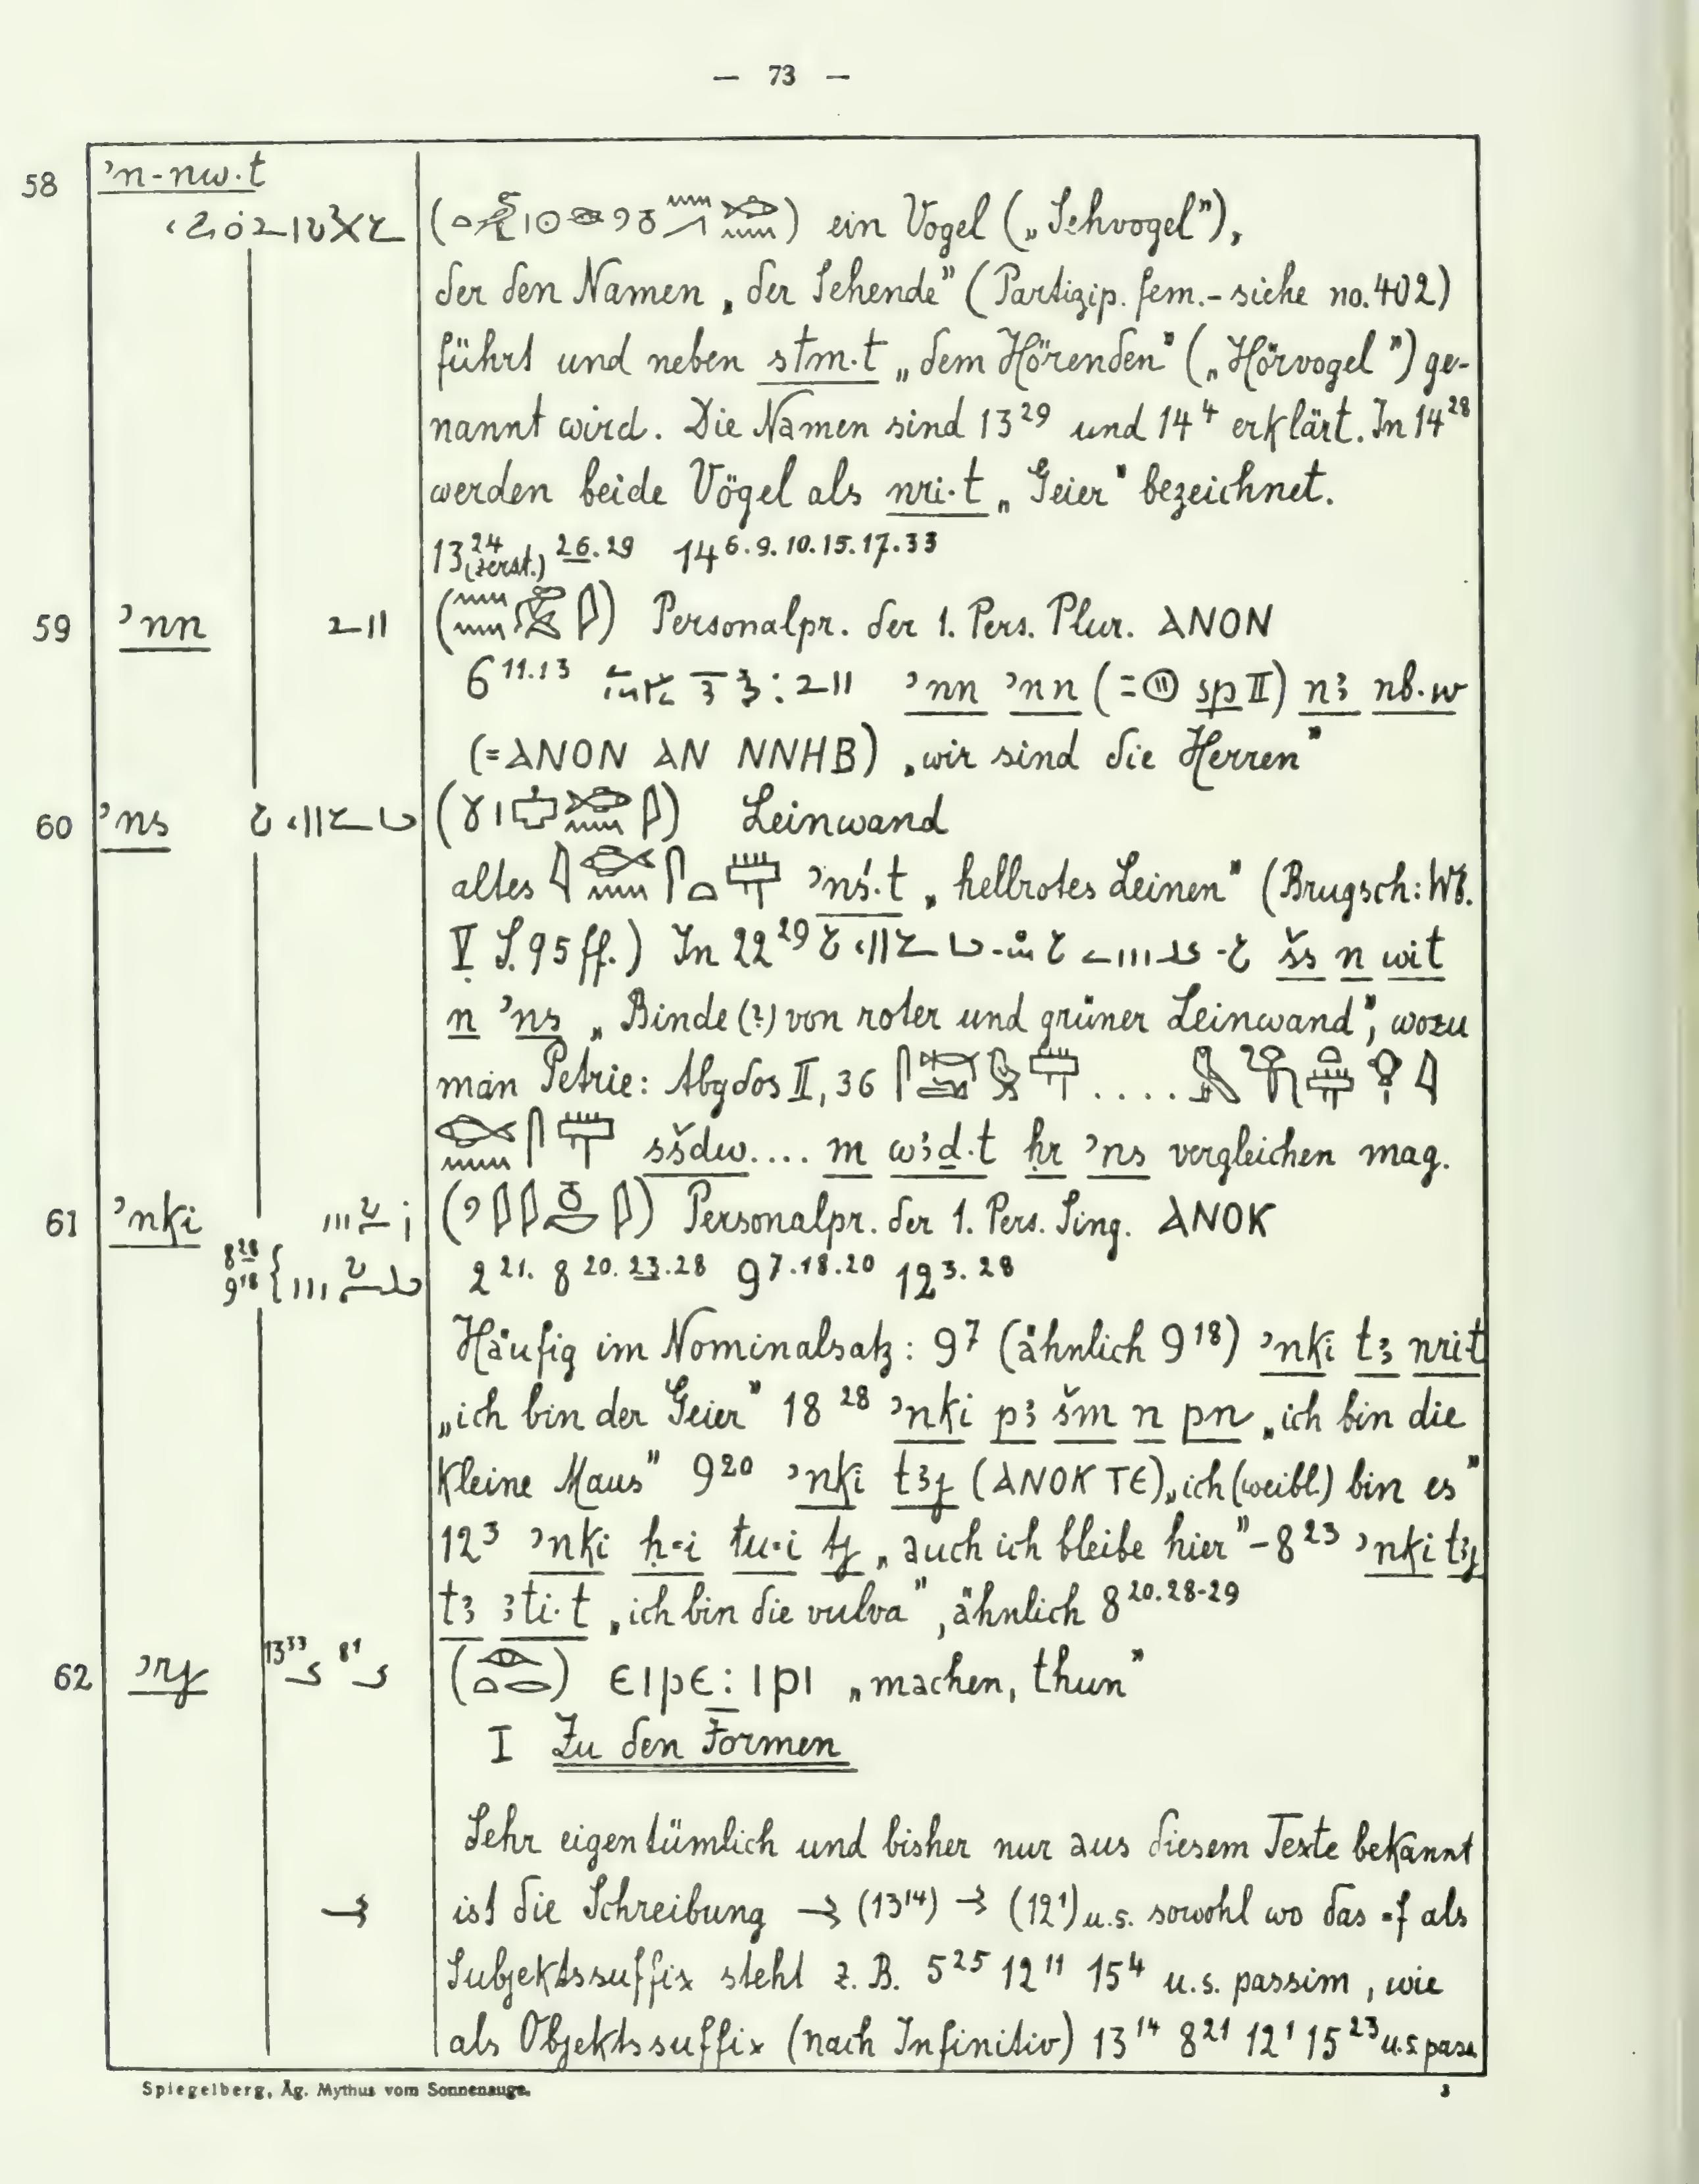 — 73 —
58 ꜣn-nw·t
( ) ein Vogel („Sehvogel"),
der den Namen „der Sehende" (Partizip. fem.- siehe no. 402)
führt und neben stm·t „dem Hörenden" („Hörvogel") ge-
nannt wird. Die Namen sind 13²⁹ und 14⁴ erklärt. In 14²⁸
werden beide Vögel als nri·t „Geier" bezeichnet.
13²⁴ (zerst.) ²⁶·²⁹ 14⁶·⁹·¹⁰·¹⁵·¹⁷·³³
59 ʾnn ( ) Personalpr. der 1. Pers. Plur. ⲀⲚⲞⲚ
6¹¹·¹³ ʾnn ʾnn (= sp II) nꜣ nb·w
(=ⲀⲚⲞⲚ ⲀⲚ ⲚⲚⲎⲂ) „wir sind die Herren"
60 ʾns ( ) Leinwand
altes ʾnś·t „hellrotes Leinen" (Brugsch: Wb.
V S. 95 ff.) In 22²⁹ šs n wit
n ʾns „Binde (?) von roter und grüner Leinwand", wozu
man Petrie: Abydos II, 36 ....
sšdw.... m wꜣḏ·t ḥr ʾns vergleichen mag.
61 ʾnki ( ) Personalpr. der 1. Pers. Sing. ⲀⲚⲞⲔ
8²⁸ 9¹⁸ { 2²¹· 8²⁰·²³·²⁸ 9⁷·¹⁸·²⁰ 12³·²⁸
Häufig im Nominalsatz: 9⁷ (ähnlich 9¹⁸) ʾnki tꜣ nri·t
„ich bin der Geier" 18²⁸ ʾnki pꜣ šm n pn „ich bin die
kleine Maus" 9²⁰ ʾnki tꜣj (ⲀⲚⲞⲔ ⲦⲈ) „ich (weibl.) bin es"
12³ ʾnki ḥ=i tu=i tj „auch ich bleibe hier" – 8²³ ʾnki tꜣj
tꜣ ꜣti·t „ich bin die vulva", ähnlich 8²⁰·²⁸⁻²⁹
62 ʾrj 13³³ 8¹ ( ) ⲈⲒⲢⲈ: ⲒⲢⲒ „machen, thun"
I Zu den Formen
Sehr eigentümlich und bisher nur aus diesem Texte bekannt
ist die Schreibung (13¹⁴) (12¹) u.s. sowohl wo das =f als
Subjektssuffix steht z. B. 5²⁵ 12¹¹ 15⁴ u.s. passim, wie
als Objektssuffix (nach Infinitiv) 13¹⁴ 8²¹ 12¹ 15²³ u.s. pass.
Spiegelberg, Äg. Mythus vom Sonnenauge. 3